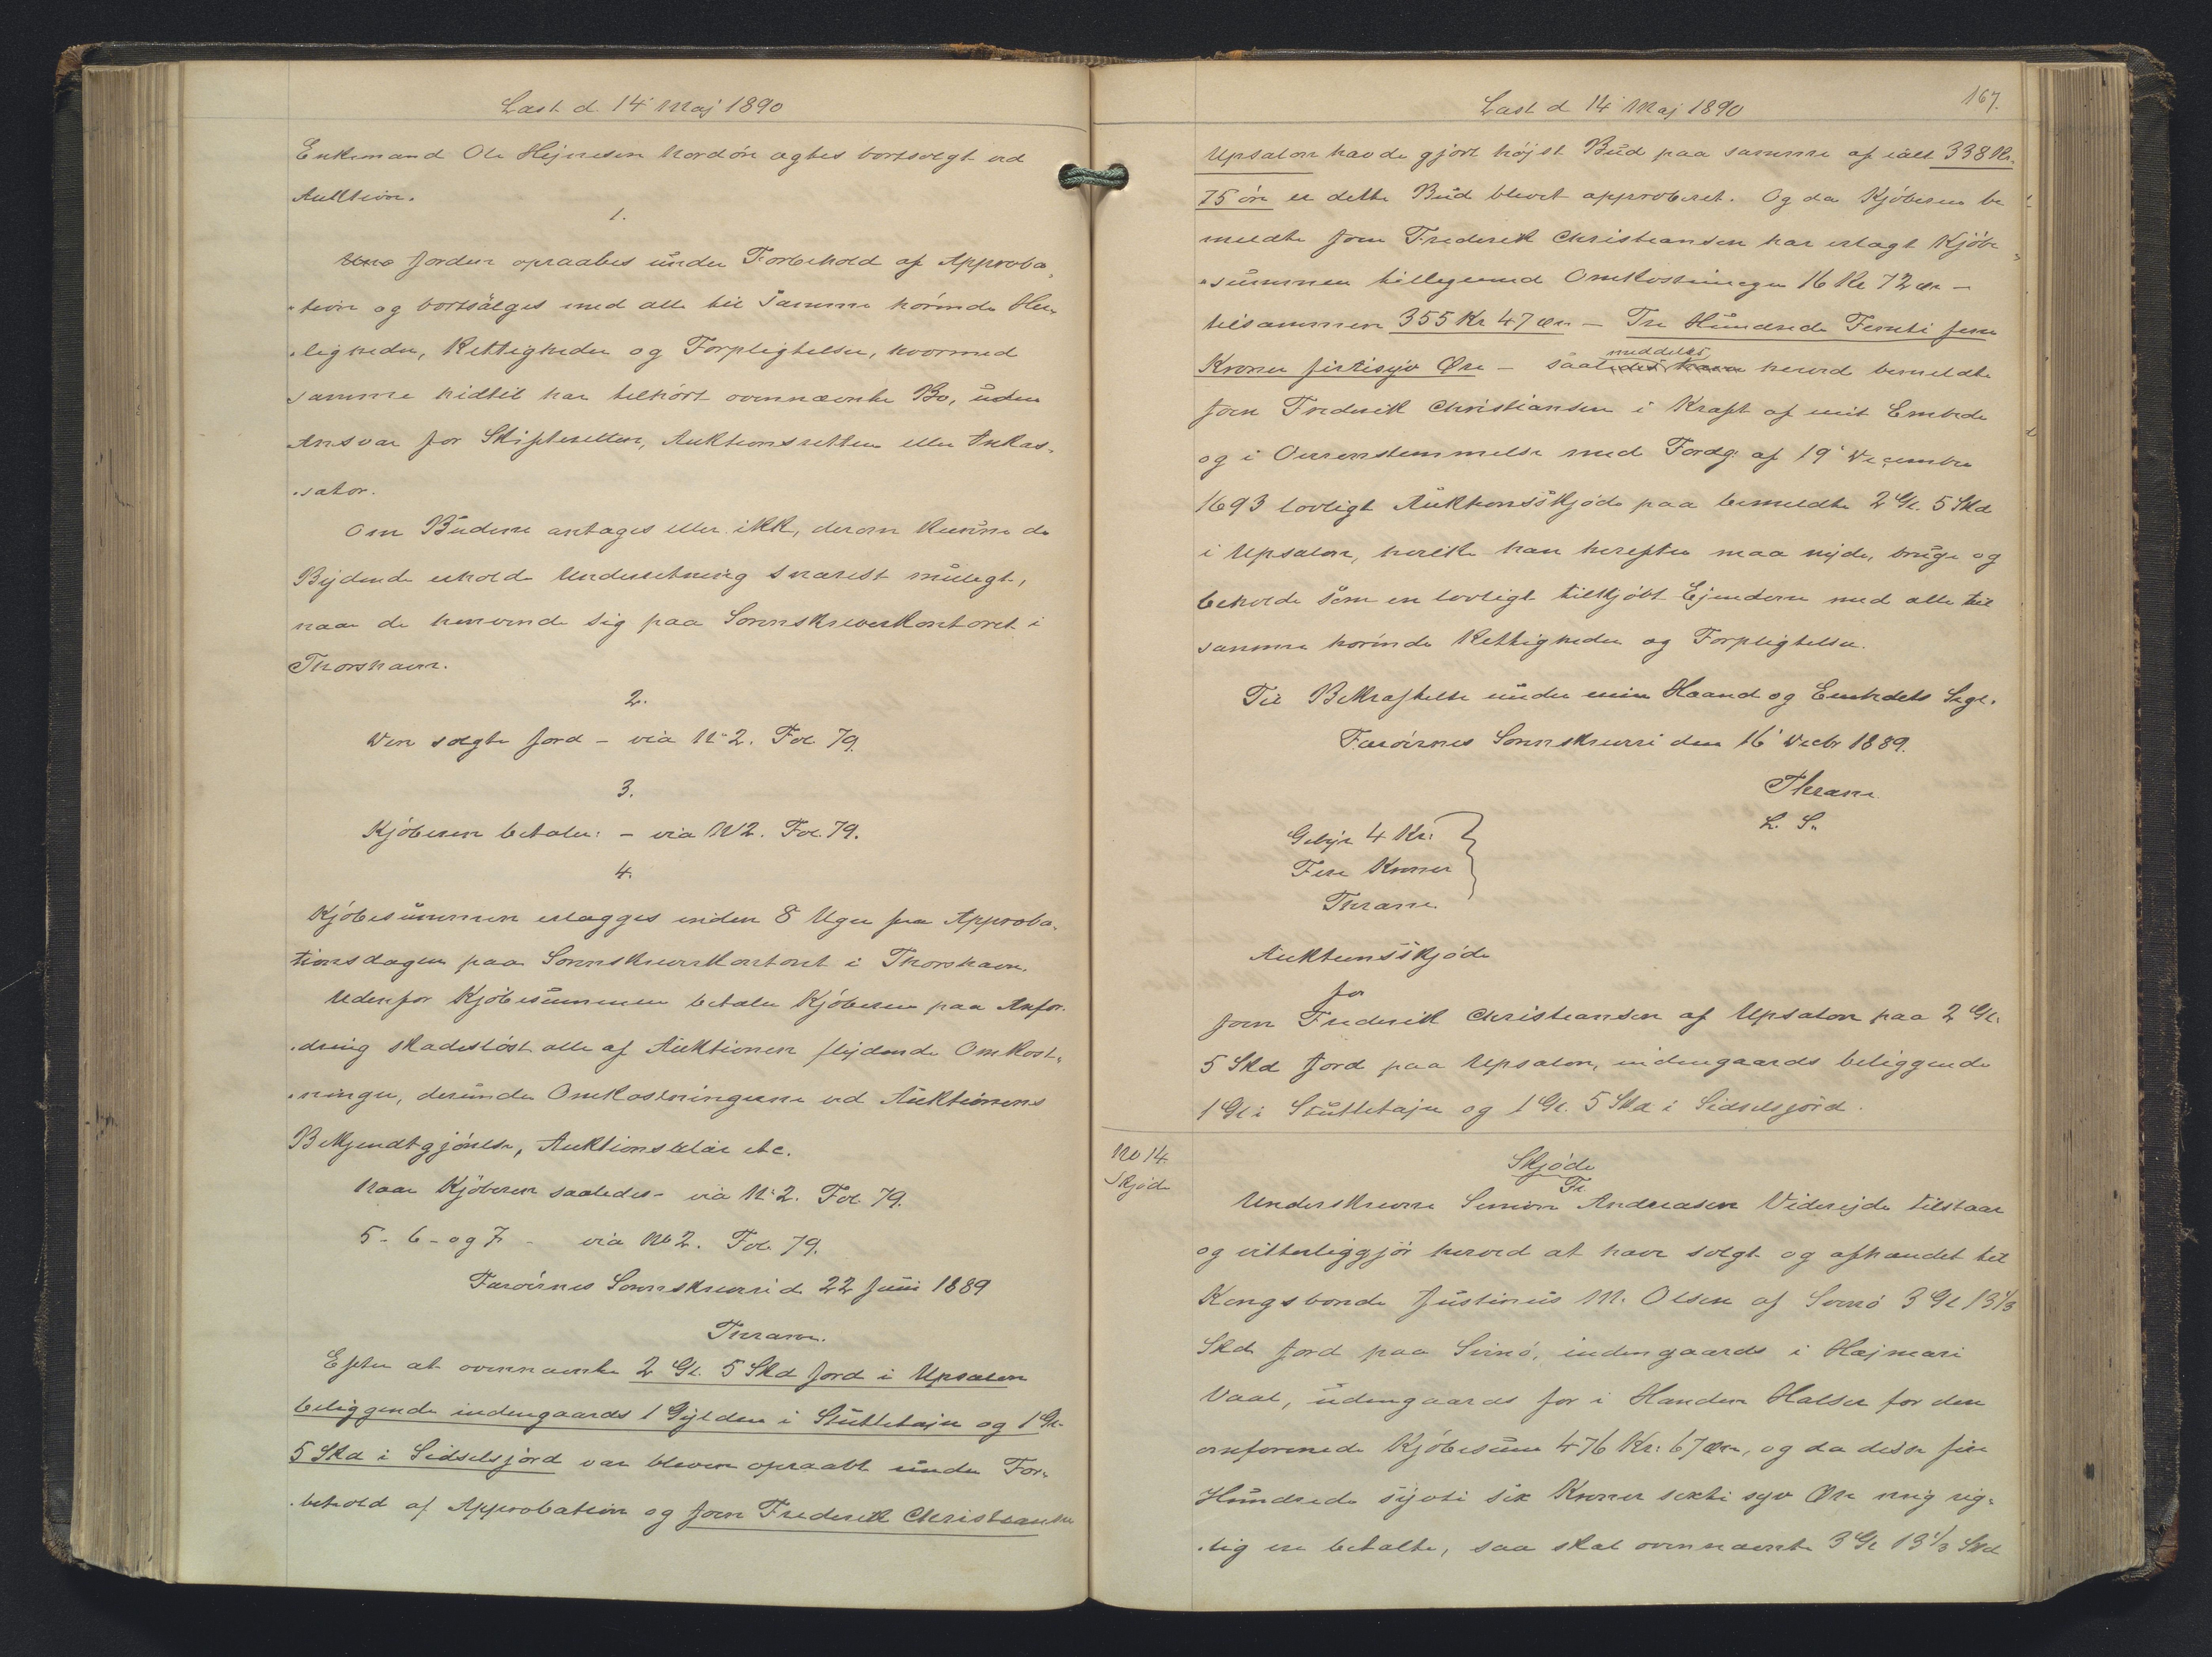 Læst d. 14' Maj 1890
Enkemand Ole Hejnesen Nordøre agtes bortsolgt ved
Auktion.
1.
Jorden opraabes under Forbehold af Approba-
-tion og bortsælges med alle til Samme hørende Her-
-ligheder, Rettigheder og Forpligtelser, hvormed
samme hidtil har tilhørt ovennævnte Bo, uden
Ansvar for Skifteretten, Auktionsretten eller Inkas-
-sator.
Om Budene antages eller ikk, derom kunne de
Bydende erholde Underretning snarest muligt,
naar de henvende sig paa Sorenskriverkontoret i
Thorshavn.
2.
Den solgte Jord - via No 2. Fol 79.
3.
Kjøberen betaler: - via No 2. Fol. 79.
4.
Kjøbesummen erlægges inden 8 Uger fra Approba-
tionsdagen paa Sorenskriverkontoret i Thorshavn.
Udenfor Kjøbesummen betaler Kjøberen paa Anfor-
-dring skadesløst alle af Auktionen flydende Omkost-
-ninger, derunder Omkostningerne ved Auktionens
Bekjendtgjørelse, Auktionssalær etc.
Naar Kjøberen saaledes - via No 2. Fol 79.
5 - 6 - og 7 - via No 2. Fol. 79.
Færøernes Sorenskriveri d. 22 Juni 1889
Thrane.
Efter at ovennævnte 2 Gl. 5 Skd Jord i Upsalen
beliggende indengaards 1 Gylden i Stuttetaju og 1 Gl.
5 Skd i Sidselsjørd var bleven opraabt under For-
-behold af Approbation og Joen Frederik Christiansen
Læst d 14' Maj 1890
167.
Upsalon havde gjort højst Bud paa samme af ialt 338 Kr.
75 øre er dette Bud blevet approberet. Og da Kjøberen be
meldte Joen Frederik Christiansen har erlagt Kjøbe
-summen tilligemed Omkostninger 16 Kr 72 Øre -
tilsammen 355 Kr 47 Øre - Tre Hundrede Femti fem
meddeles
Kroner firtisyv Øre - saaledes herved bemeldte
Joen Frederik Christiansen i Kraft af mit Embede
og i Overensstemmelse med Fordg. af 19' December
1693 lovligt Auktionsskjøde paa bemeldte 2 Gl. 5 Skd
i Upsalon, hvilke han herefter maa nyde, bruge og
beholde som en lovligt tilkjøbt Ejendom med alle til
samme hørende Rettigheder og Forpligtelser.
Til Bekræftelse under min Haand og Embedets Segl.
Færøernes Sorenskriveri den 16' Decbr 1889.
Thrane
L. S.
Gebyr 4 Kr:
Fire Kroner
Thrane
Auktionsskjøde
for
Joen Frederik Christiansen af Upsalon paa 2 Gl.
5 Skd Jord paa Upsalon, indengaards beliggende
1 Gl i Stuttetaju og 1 Gl. 5 Skd i Sidselsjørd.
No 14
Skjøde
Skjøde
Underskrevne Simon Andreasen Viderejde tilstaar
og vitterliggjør herved at have solgt og afhændet til
Kongsbonde Justinus M. Olsen af Svinø 3 Gl 13 1/3
Skd Jord paa Svinø, indengaards i Hæjmari
Vaal, udengaards for i Handen Halser for den
omforenede Kjøbesum 476 Kr: 67 Øre, og da disse fire
Hundrede syvti sex Kroner sexti syv Øre mig rig-
-tig ere betalte, saa skal ovennævnte 3 Gl 13 1/3 Skd